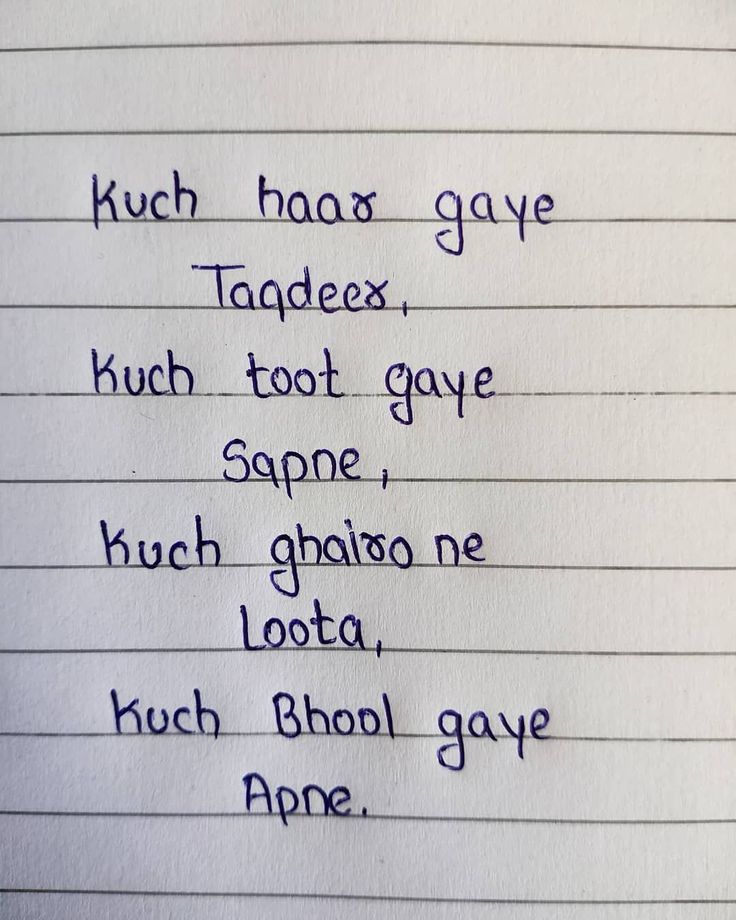 Kuch haar gaye
Taqdeer,
Kuch toot gaye
Sapne,
Kuch ghairo ne
Loota,
Kuch Bhool gaye
Apne.